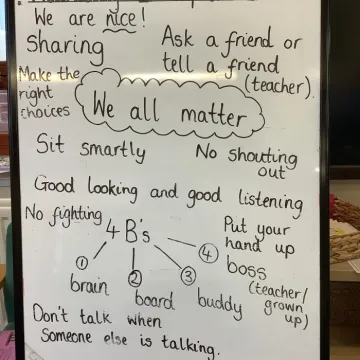 We are nice!
Sharing
Ask a friend or
tell a friend
(teacher)
Make the
right
choices
We all matter
Sit smartly
No shouting
out
Good looking and good listening
No fighting
4 B's
Put your
hand up
① brain
② board
③ buddy
④ boss
(teacher/
grown
up)
Don't talk when
someone else is talking.